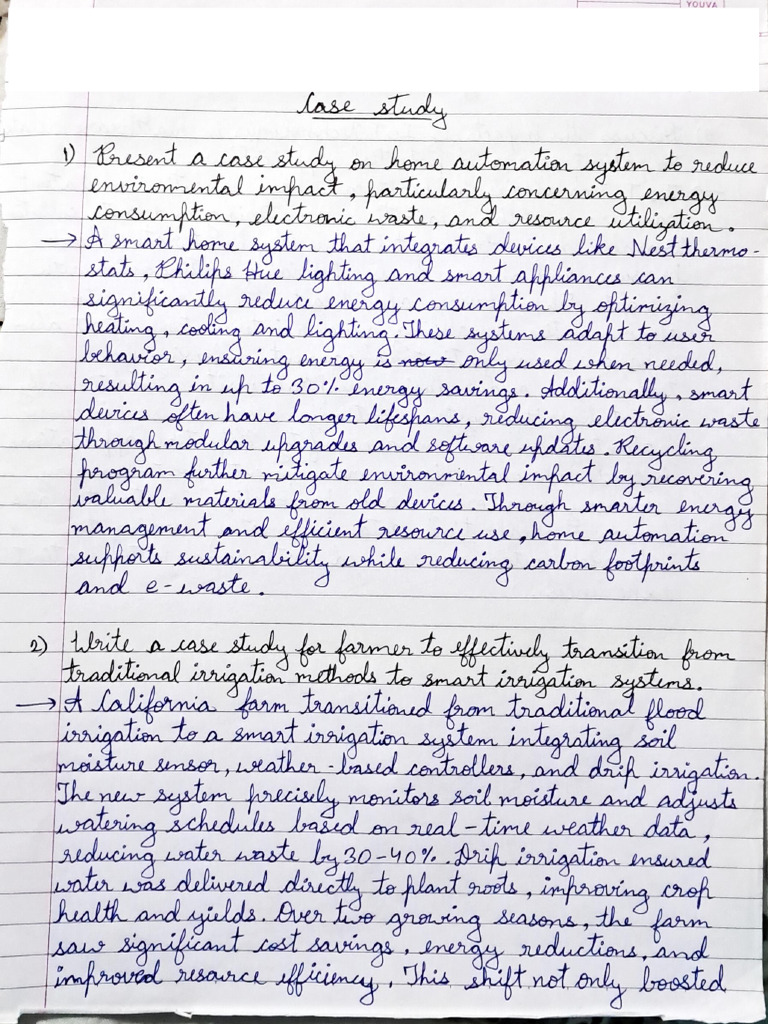 YOUVA
Case study
1) Present a case study on home automation system to reduce
environmental impact, particularly concerning energy
consumption, electronic waste, and resource utilization.
→ A smart home system that integrates devices like Nest thermo-
stats, Philips Hue lighting and smart appliances can
significantly reduce energy consumption by optimizing
heating, cooling and lighting. These systems adapt to user
behavior, ensuring energy is now only used when needed,
resulting in up to 30% energy savings. Additionally, smart
devices often have longer lifespans, reducing electronic waste
through modular upgrades and software updates. Recycling
program further mitigate environmental impact by recovering
valuable materials from old devices. Through smarter energy
management and efficient resource use, home automation
supports sustainability while reducing carbon footprints
and e-waste.
2) Write a case study for farmer to effectively transition from
traditional irrigation methods to smart irrigation systems.
→ A California farm transitioned from traditional flood
irrigation to a smart irrigation system integrating soil
moisture sensor, weather-based controllers, and drip irrigation.
The new system precisely monitors soil moisture and adjusts
watering schedules based on real-time weather data,
reducing water waste by 30-40%. Drip irrigation ensured
water was delivered directly to plant roots, improving crop
health and yields. Over two growing seasons, the farm
saw significant cost savings, energy reductions, and
improved resource efficiency. This shift not only boosted